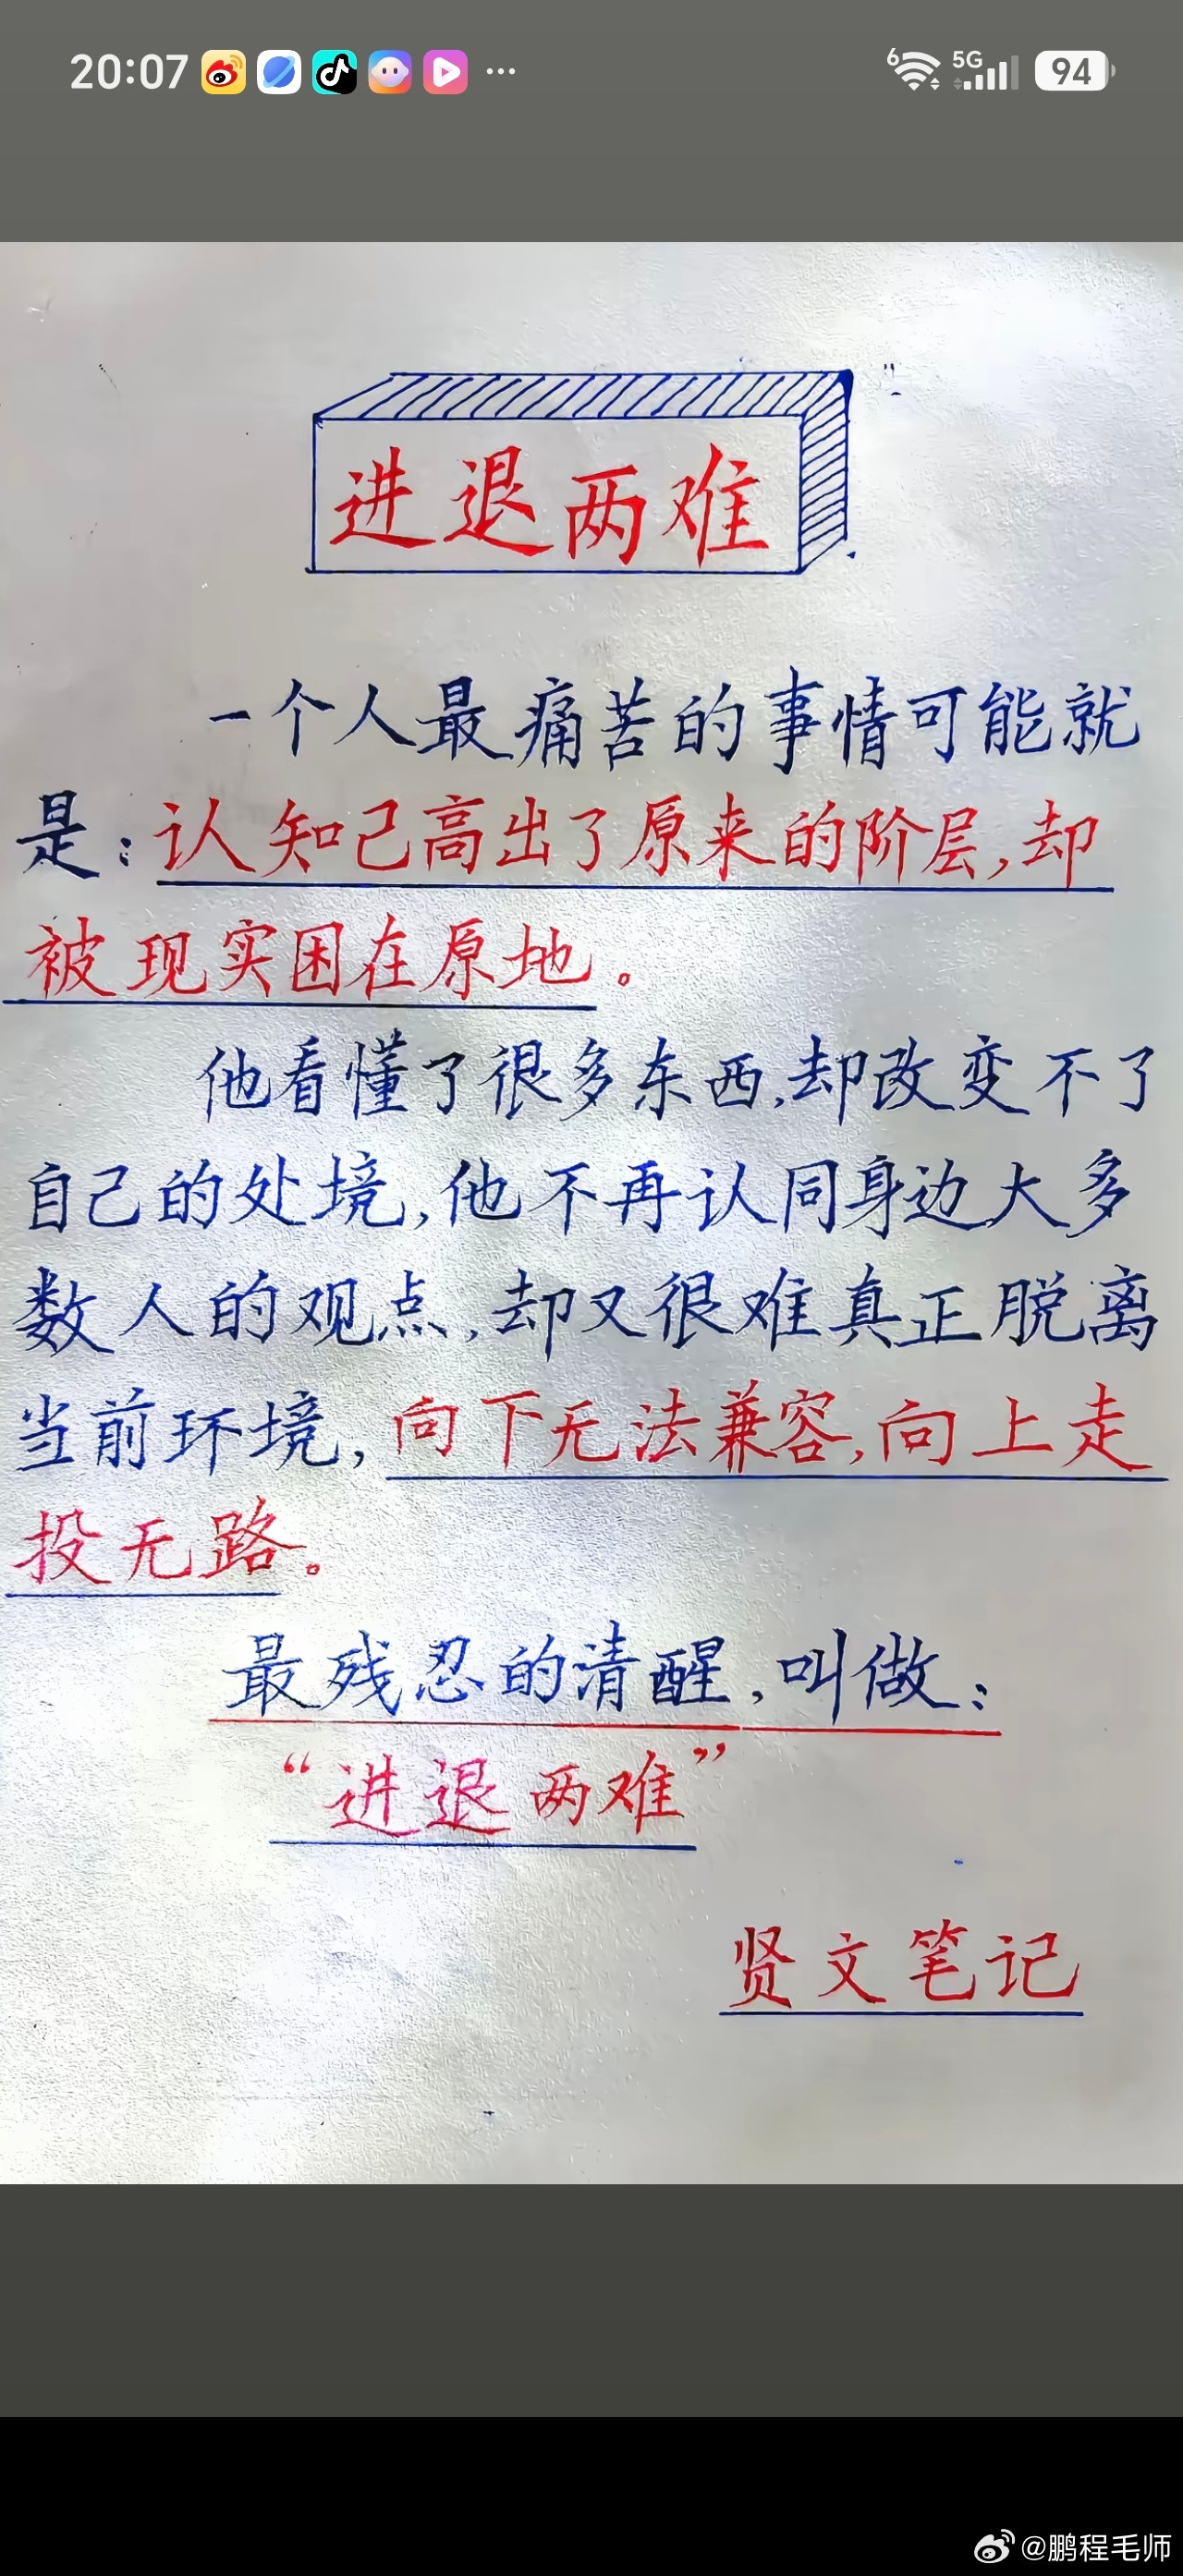 20:07
6
5G
94
进退两难
一个人最痛苦的事情可能就
是:认知已高出了原来的阶层,却
被现实困在原地。
他看懂了很多东西,却改变不了
自己的处境,他不再认同身边大多
数人的观点,却又很难真正脱离
当前环境,向下无法兼容,向上走
投无路。
最残忍的清醒,叫做:
“进退两难”
贤文笔记
@鹏程毛师